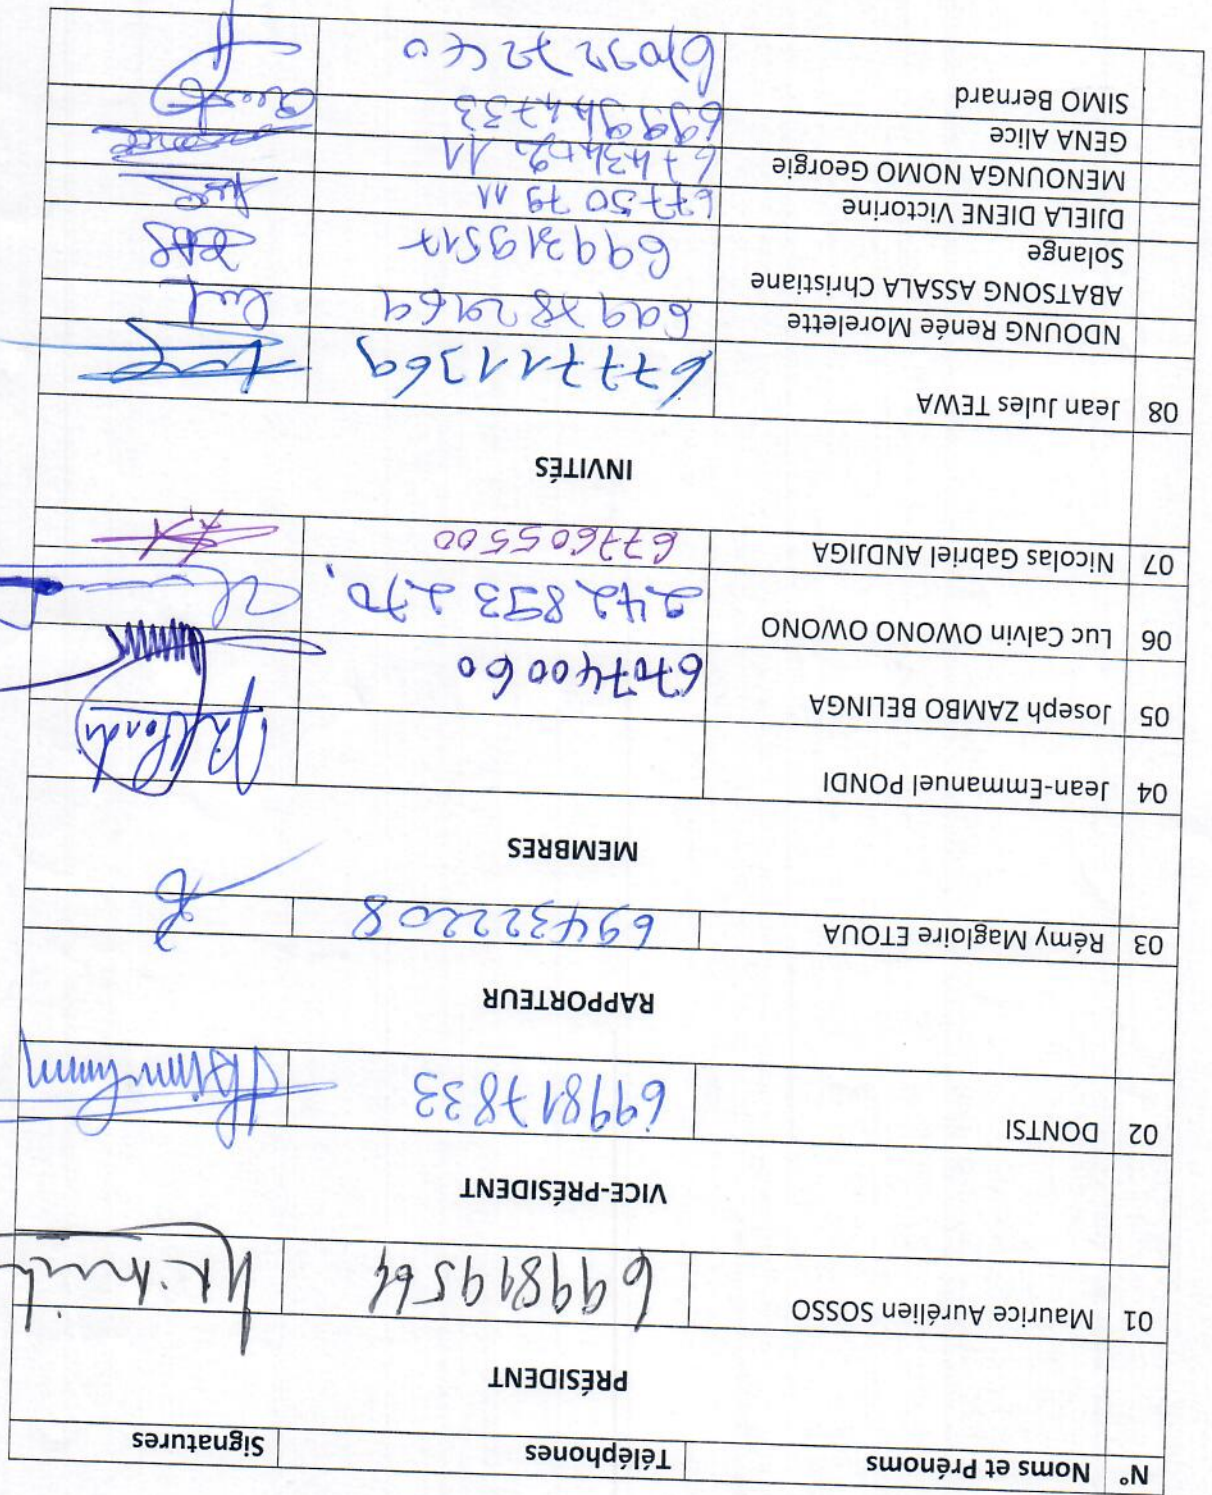 N° Noms et Prénoms Téléphones Signatures
PRÉSIDENT
01 Maurice Aurélien SOSSO 699819564
VICE-PRÉSIDENT
02 DONTSI 699817833
RAPPORTEUR
03 Rémy Magloire ETOUA 694322208
MEMBRES
04 Jean-Emmanuel PONDI
05 Joseph ZAMBO BELINGA 670740060
06 Luc Calvin OWONO OWONO 242 893 270
07 Nicolas Gabriel ANDJIGA 677605500
INVITÉS
08 Jean Jules TEWA 677711369
NDOUNG Renée Morelette 699782969
ABATSONG ASSALA Christiane
Solange 699319517
DJIELA DIENE Victorine 677507911
MENOUNGA NOMO Georgie
GENA Alice
SIMO Bernard